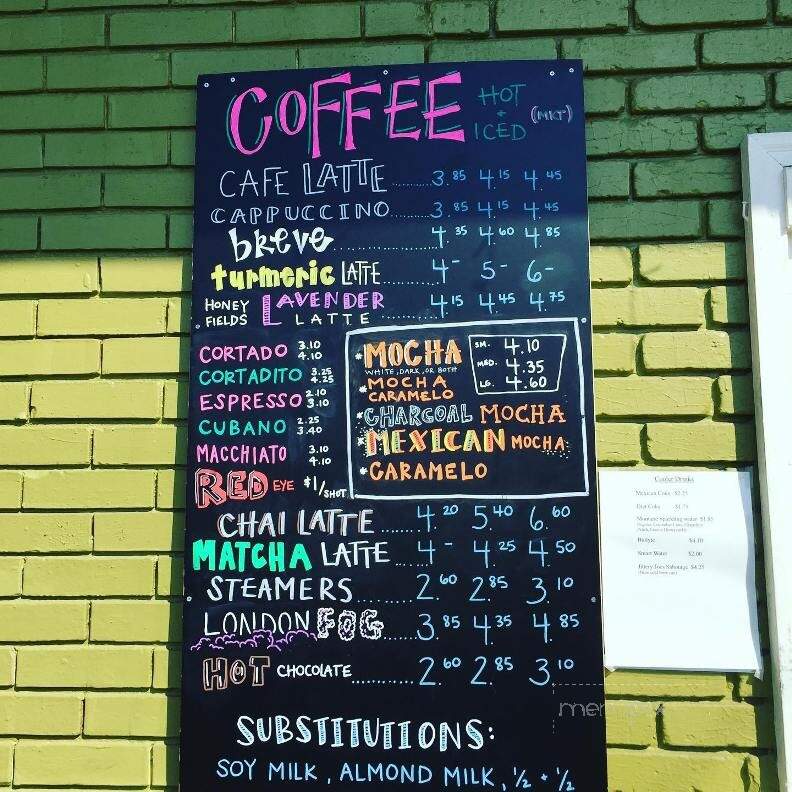 COFFEE HOT + ICED (MKT)
CAFE LATTE 3.85 4.15 4.45
CAPPUCCINO 3.85 4.15 4.45
breve 4.35 4.60 4.85
turmeric LATTE 4- 5- 6-
HONEY FIELDS LAVENDER LATTE 4.15 4.45 4.75
CORTADO 3.10 4.10
CORTADITO 3.25 4.25
ESPRESSO 2.10 3.10
CUBANO 2.25 3.40
MACCHIATO 3.10 4.10
RED EYE $1/SHOT
*MOCHA
WHITE, DARK, OR BOTH
SM. 4.10
MED. 4.35
LG. 4.60
*MOCHA CARAMELO
*CHARCOAL MOCHA
*MEXICAN MOCHA
*CARAMELO
CHAI LATTE 4.20 5.40 6.60
MATCHA LATTE 4.- 4.25 4.50
STEAMERS 2.60 2.85 3.10
LONDON FOG 3.85 4.35 4.85
HOT CHOCOLATE 2.60 2.85 3.10
SUBSTITUTIONS:
SOY MILK, ALMOND MILK, ½ + ½
Cooler Drinks
Mexican Coke $2.25
Diet Coke $1.75
Smart Water $2.00